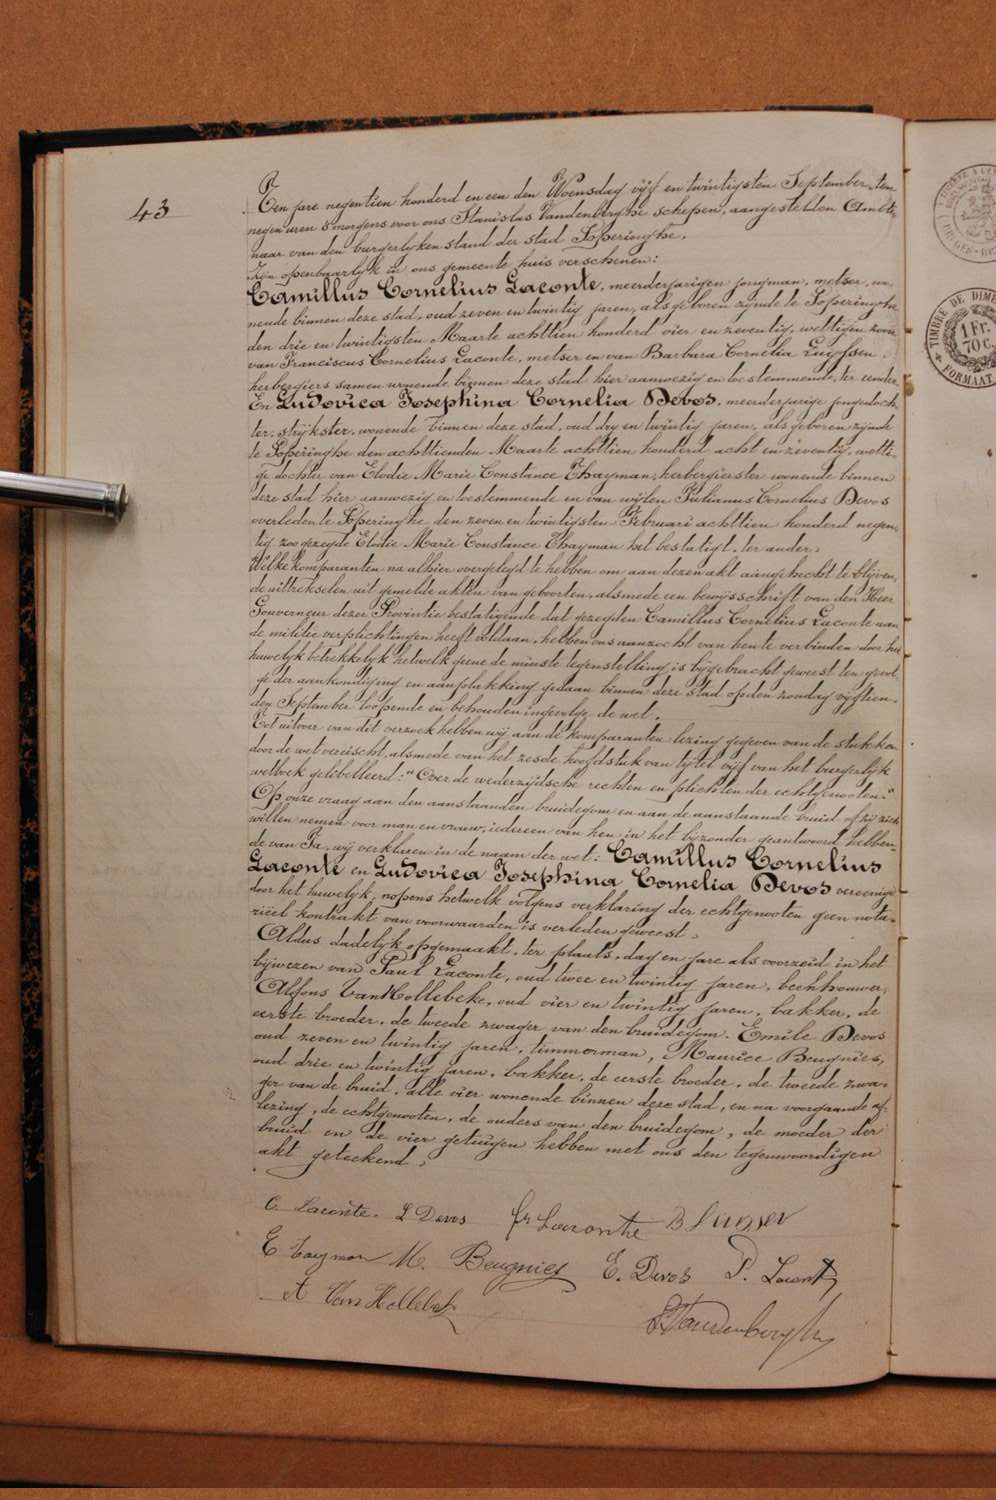 43
Ten jare negentien honderd en een den Woensdag vijf en twintigsten September, ten
negen uren 's morgens voor ons Stanislas Vandenberghe schepen, aangestelden Ambte-
naar van den burgerlyken stand der stad Poperinghe.
Zijn openbaarlyk in ons gemeente huis verschenen:
Camillus Cornelius Laconte, meerderjarigen jongman, metser, wo-
nende binnen deze stad, oud zeven en twintig jaren, als geboren zijnde te Poperinghe
den drie en twintigsten Maarte achttien honderd vier en zeventig, wettigen zoon
van Franciscus Cornelius Laconte, metser en van Barbara Cornelia Luyssen,
herbergiers samen wonende binnen deze stad hier aanwezig en toestemmende, ter eender.
En Ludovica Josephina Cornelia Devos, meerderjarige jongedoch-
ter, strijkster, wonende binnen deze stad, oud dry en twintig jaren, als geboren zijnde
te Poperinghe den achttienden Maarte achttien honderd acht en zeventig, wetti-
ge dochter van Elodie Marie Constance Thayman, herbergierster wonende binnen
deze stad hier aanwezig en toestemmende en van wijlen Julianus Cornelius Devos
overleden te Poperinghe den zeven en twintigsten Februari achttien honderd negen-
tig zoo gezegde Elodie Marie Constance Thayman het bestatigt, ter ander.
Welke komparanten na alhier overgelegd te hebben om aan dezen akt aangehecht te blijven,
de uittrekselen uit gemelde akten van geboorten, alsmede een bewijsschrift van den Heer
Gouverneur dezer Provintie bestatigende dat gezegden Camillus Cornelius Laconte aan
de militie verplichtingen heeft voldaan, hebben ons aanzocht van hen te verbinden door het
huwelyk betrekkelyk hetwelk geene de minste tegenstelling is bijgebracht geweest ten gevol-
ge der aankondiging en aanplakking gedaan binnen deze stad op den zondag vijftien-
den September loopende en behouden ingevolge de wet.
Tot uitvoer van dit verzoek hebben wij aan de komparanten lezing gegeven van de stukken
door de wet vereischt, alsmede van het zesde hoofdstuk van tytel vijf van het burgerlyk
wetboek getebelleerd: "Over de wederzijdsche rechten en plichten der echtgenooten."
Op onze vraag aan den aanstaanden bruidegom en aan de aanstaande bruid of zij zich
willen nemen voor man en vrouw, iedereen van hen in het bijzonder geantwoord hebben-
de van Ja, wij verklaren in de naam der wet: Camillus Cornelius
Laconte en Ludovica Josephina Cornelia Devos vereenigd
door het huwelyk, nopens hetwelk volgens verklaring der echtgenooten geen nota-
riëel kontrakt van voorwaarden is verleden geweest.
Aldus dadelyk opgemaakt, ter plaats, dag en jare als voorzeid in het
bijwezen van Paul Laconte, oud twee en twintig jaren, beenhouwer,
Alfons Van Hollebeke, oud vier en twintig jaren, bakker, de
eerste broeder, de tweede zwager van den bruidegom. Emile Devos
oud zeven en twintig jaren, timmerman, Maurice Beugnies,
oud drie en twintig jaren, bakker, de eerste broeder, de tweede zwa-
ger van de bruid, alle vier wonende binnen deze stad, en na voorgaande af-
lezing, de echtgenooten, de ouders van den bruidegom, de moeder der
bruid en de vier getuigen hebben met ons den tegenwoordigen
akt geteekend.
C. Laconte. L Devos fr Laconte
E Taymon M. Beugnies E. Devos P. Laconte
A Van Hollebeke
S Vandenberghe
TIMBRE DE DIMEN
1 Fr.
70 c.
FORMAAT